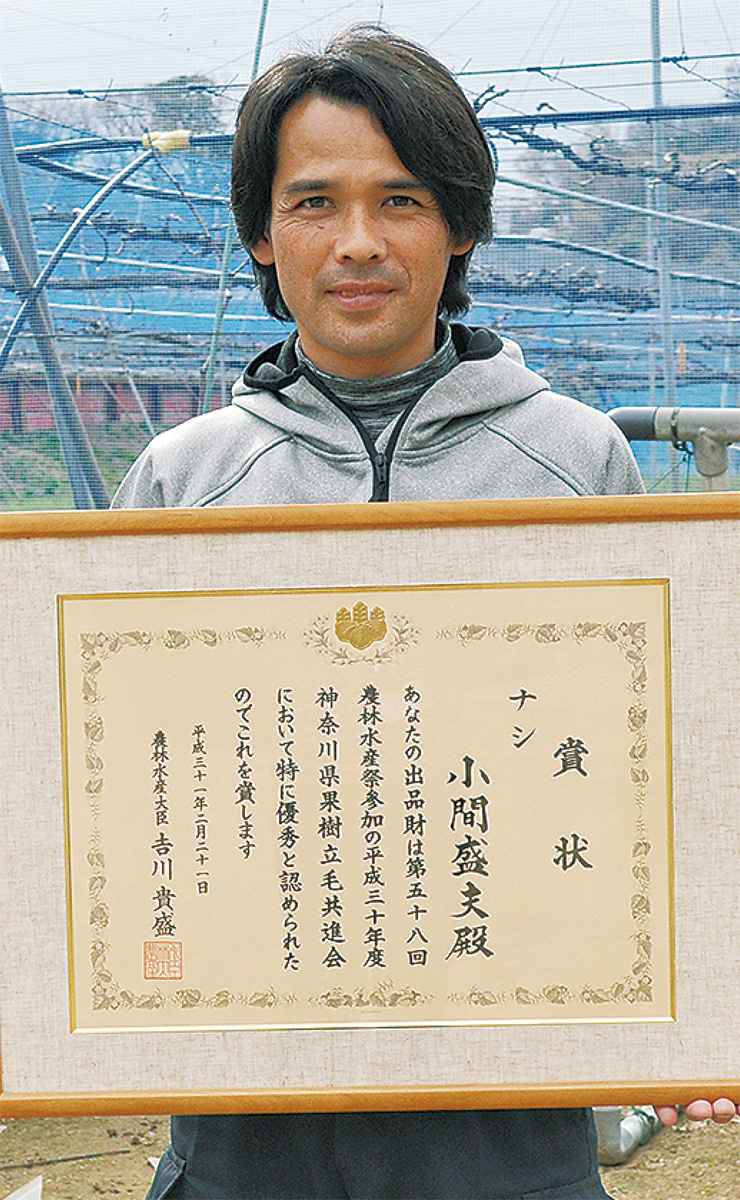 賞状
ナシ
小間盛夫殿
あなたの出品財は第五十八回
農林水産祭参加の平成三十年度
神奈川県果樹立毛共進会
において特に優秀と認められた
のでこれを賞します
平成三十一年二月二十一日
農林水産大臣 吉川貴盛